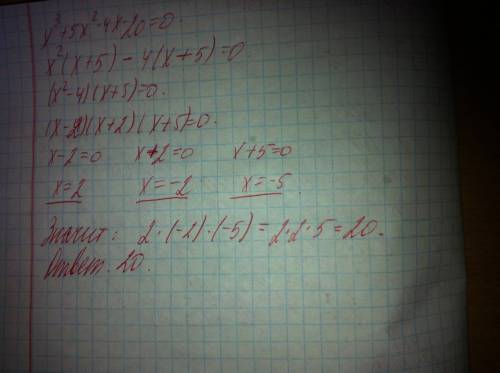 x³+5x²-4x-20=0.
x²(x+5)-4(x+5)=0
(x²-4)(x+5)=0.
(x-2)(x+2)(x+5)=0.
x-2=0 x+2=0 x+5=0
x=2 x=-2 x=-5.
Значит: 2·(-2)·(-5)=2·2·5=20.
Ответ: 20.